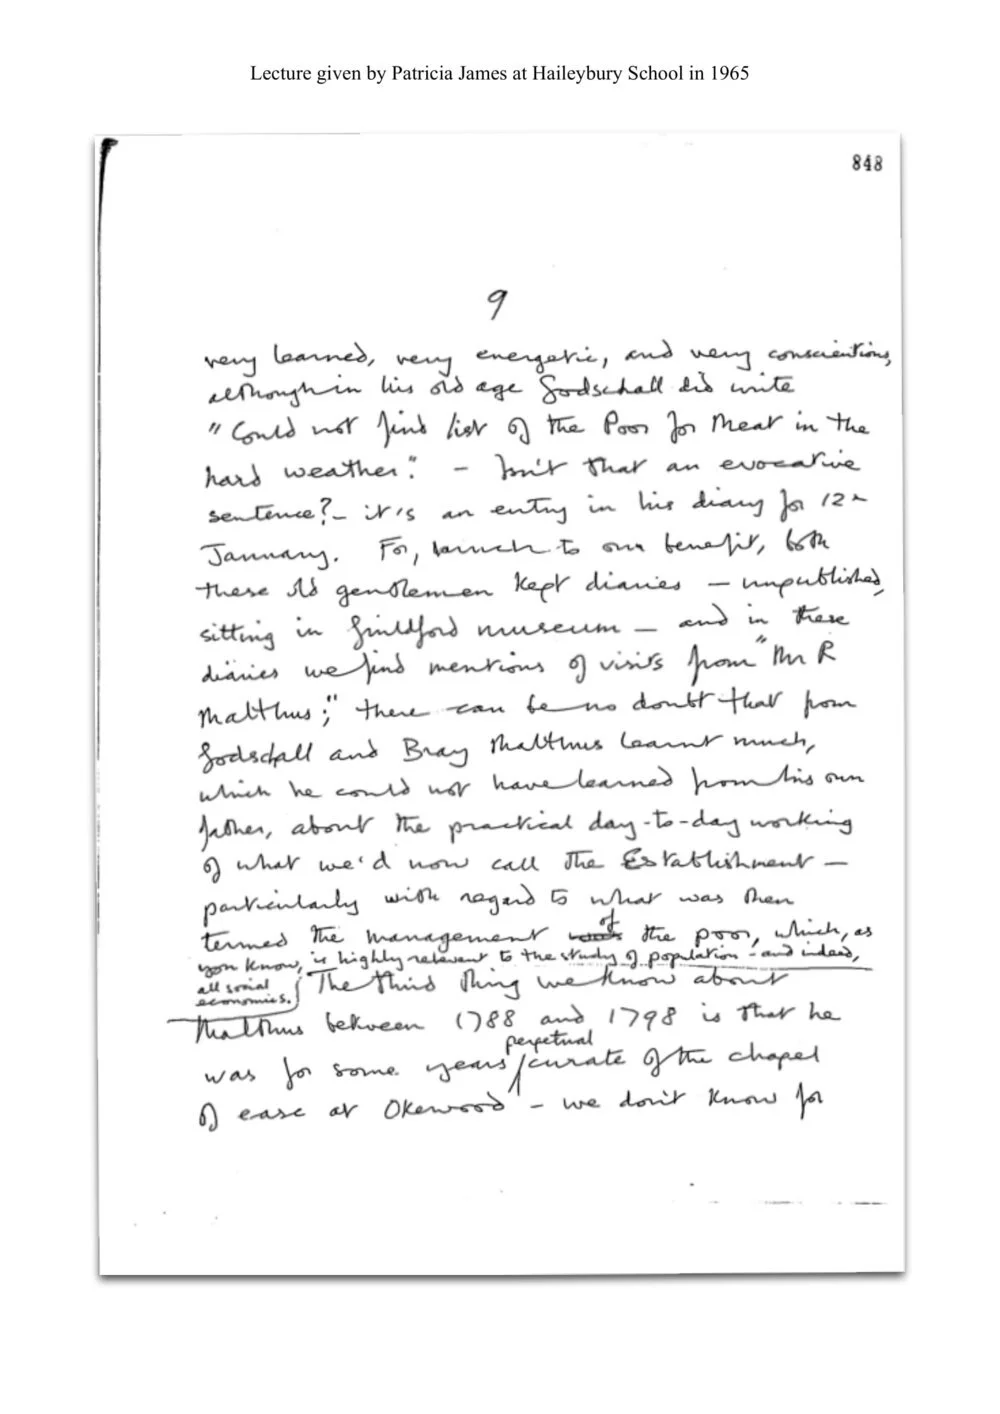 Lecture given by Patricia James at Haileybury School in 1965
848
9
very learned, very energetic, and very conscientious,
although in his old age Godschall did write
"Could not find list of the Poor for Meat in the
hard weather." – Isn't that an evocative
sentence? – it's an entry in his diary for 12th
January. For, much to our benefit, both
these old gentlemen kept diaries – unpublished,
sitting in Guildford museum – and in these
diaries we find mentions of visits from "Mr R
Malthus;" there can be no doubt that from
Godschall and Bray Malthus learnt much,
which he could not have learned from his own
father, about the practical day-to-day working
of what we'd now call the Establishment –
particularly with regard to what was then
termed the management of the poor, which, as
you know, is highly relevant to the study of population – and indeed,
all social
economics. The third thing we know about
Malthus between 1788 and 1798 is that he
was for some years perpetual curate of the chapel
of ease at Okewood – we don't know for